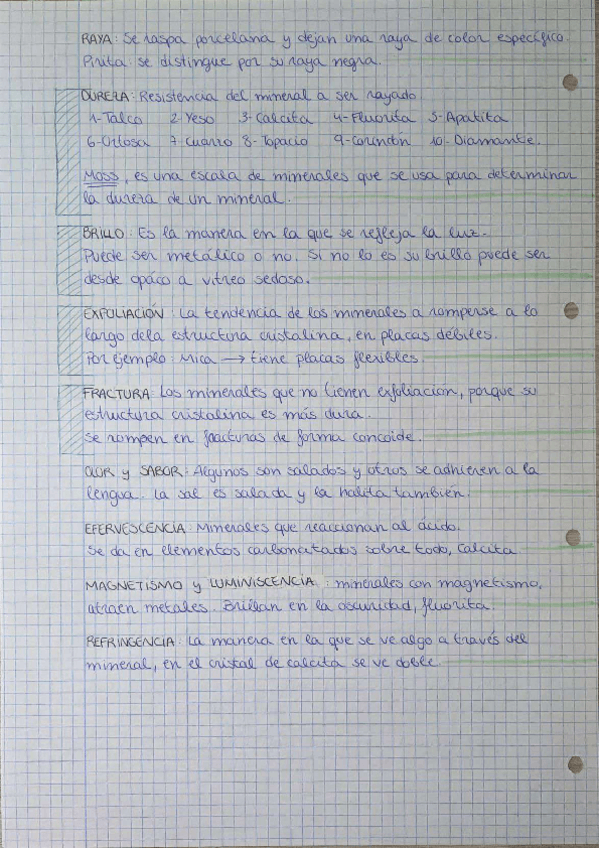 RAYA: Se raspa porcelana y dejan una raya de color específico.
Pirita se distingue por su raya negra.
DUREZA: Resistencia del mineral a ser rayado
1-Talco 2-Yeso 3-Calcita 4-Fluorita 5-Apatita
6-Ortosa 7-Cuarzo 8-Topacio 9-Corindón 10-Diamante.
Moss, es una escala de minerales que se usa para determinar
la dureza de un mineral.
BRILLO: Es la manera en la que se refleja la luz.
Puede ser metálico o no. Si no lo es su brillo puede ser
desde opaco a vítreo sedoso.
EXFOLIACIÓN: La tendencia de los minerales a romperse a lo
largo dela estructura cristalina, en placas débiles.
Por ejemplo: Mica → tiene placas flexibles.
FRACTURA: Los minerales que no tienen exfoliación, porque su
estructura cristalina es más dura.
Se rompen en fracturas de forma concoide.
OLOR y SABOR: Algunos son salados y otros se adhieren a la
lengua. La sal es salada y la halita también.
EFERVESCENCIA: Minerales que reaccionan al ácido.
Se da en elementos carbonatados sobre todo, Calcita
MAGNETISMO y LUMINISCENCIA: minerales con magnetismo,
atraen metales. Brillan en la oscuridad, fluorita.
REFRINGENCIA: La manera en la que se ve algo a través del
mineral, en el cristal de calcita se ve doble.